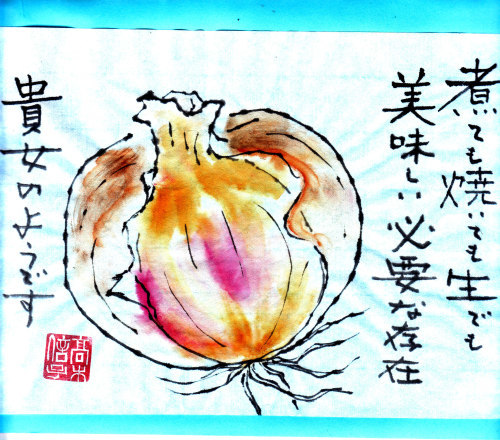 煮ても焼いても生でも
美味しい必要な存在
貴女のようです
高木
信子